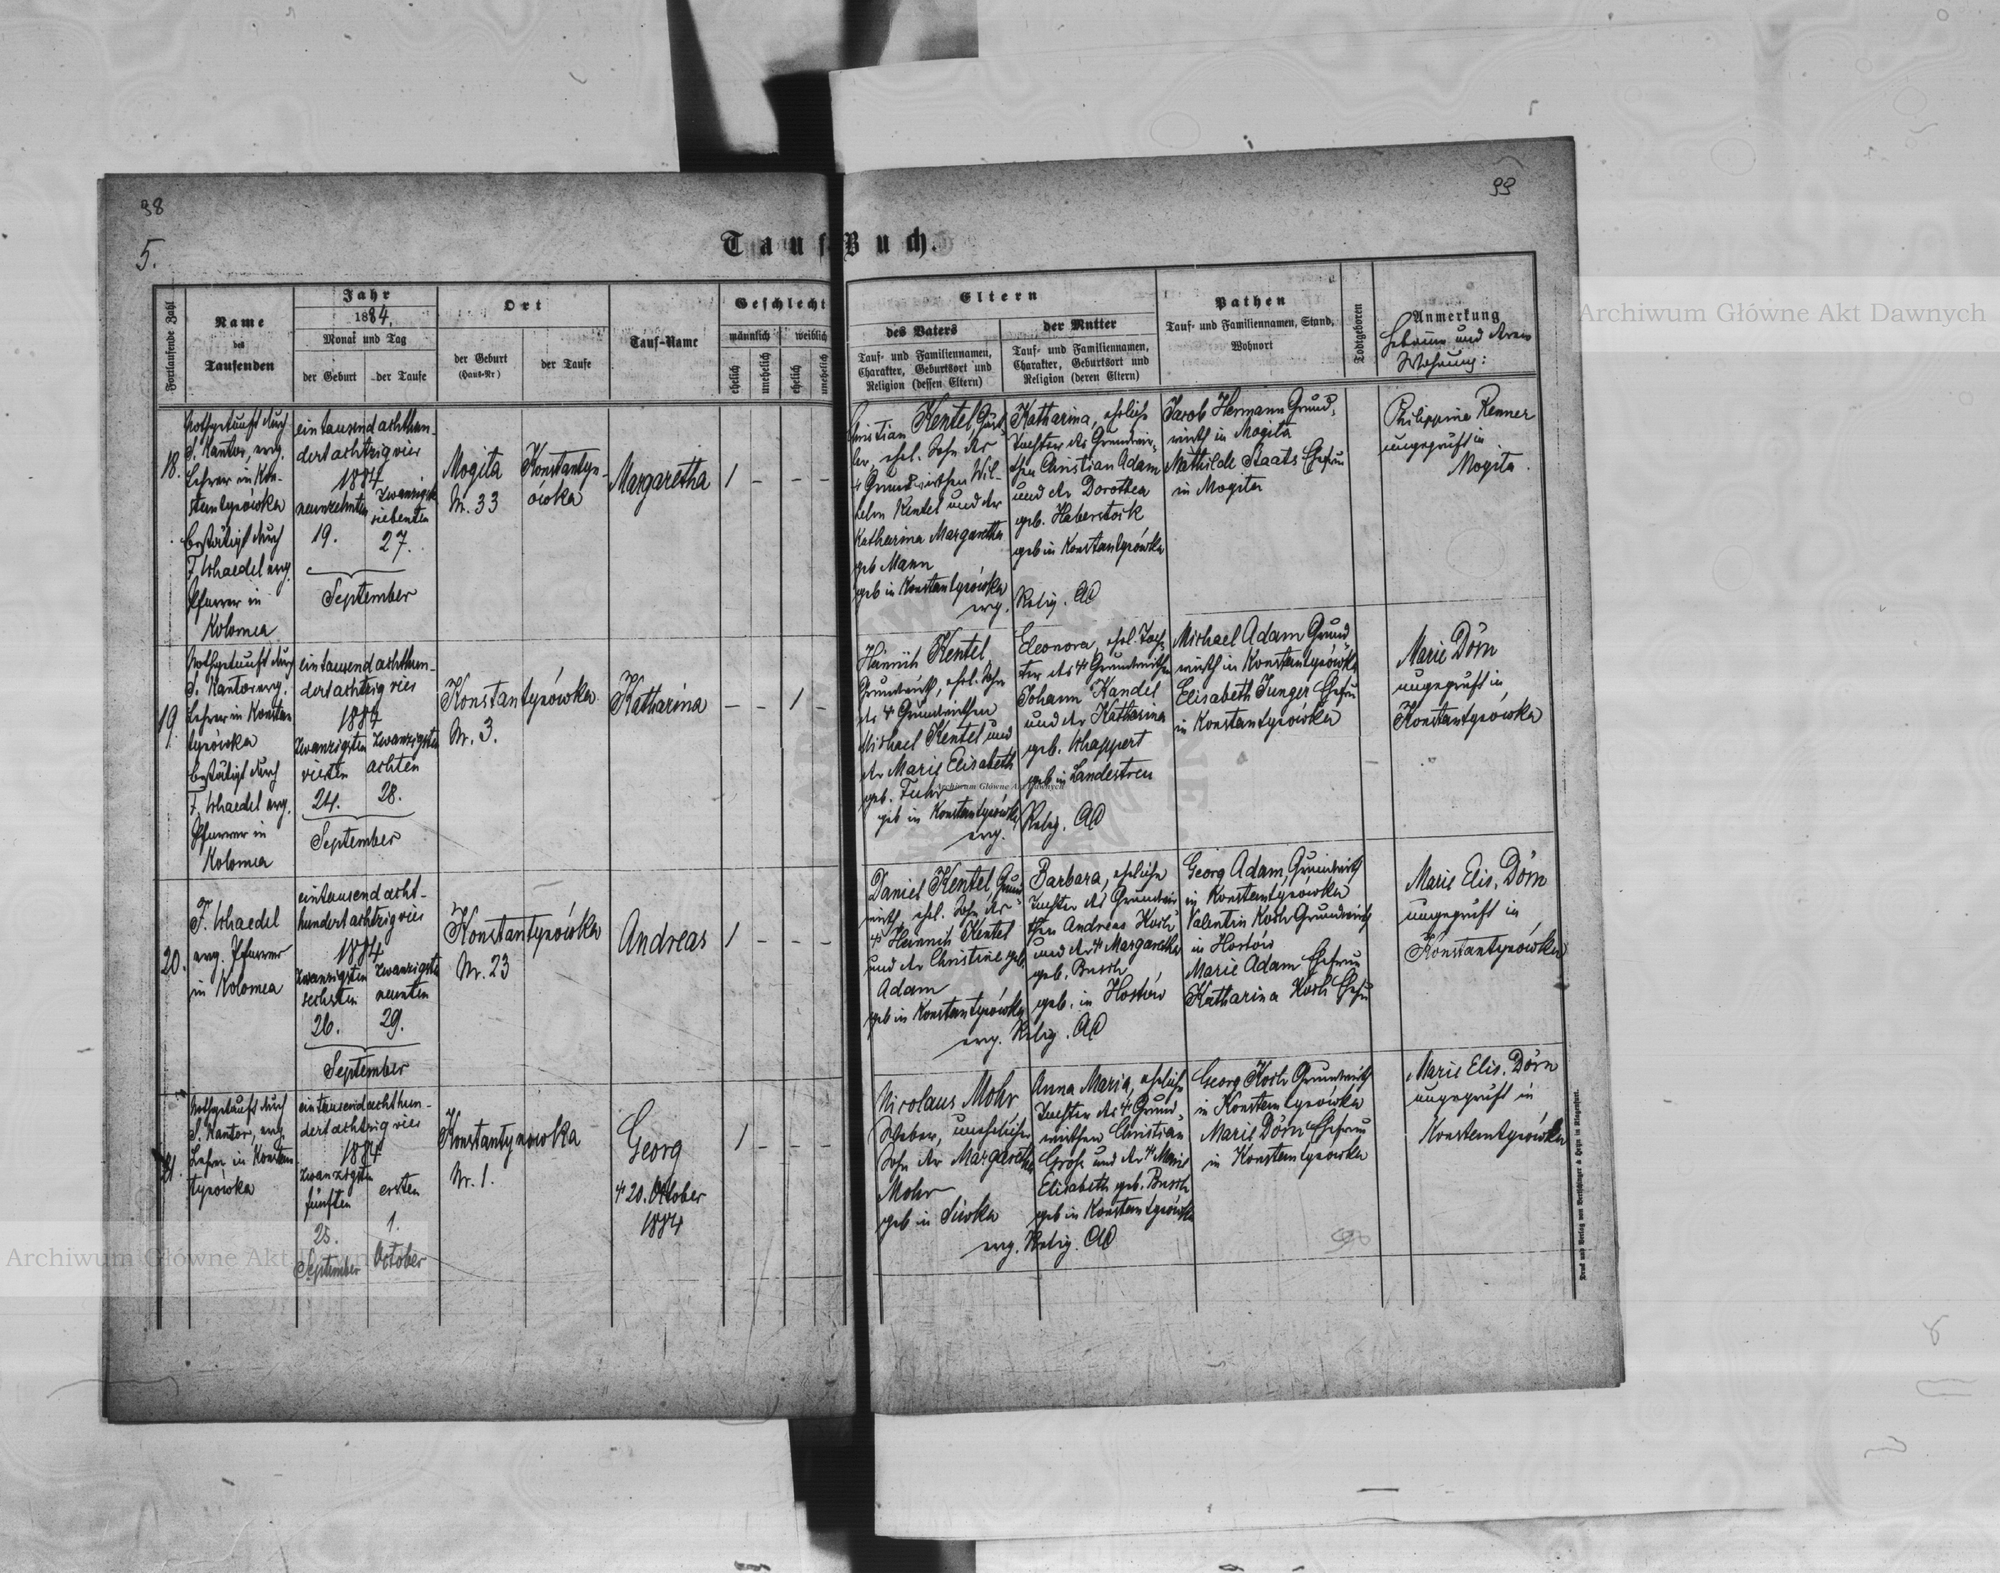 38
99
5.
Tauf-Buch.
Fortlaufende Zahl
Name
des
Taufenden
Jahr
1884.
Monat und Tag
der Geburt
der Taufe
Ort
der Geburt
(Haus-Nr)
der Taufe
Tauf-Name
Geschlecht
männlich
weiblich
ehelich
unehelich
ehelich
unehelich
Eltern
des Vaters
Tauf- und Familiennamen,
Charakter, Geburtsort und
Religion (dessen Eltern)
der Mutter
Tauf- und Familiennamen,
Charakter, Geburtsort und
Religion (deren Eltern)
Pathen
Tauf- und Familiennamen, Stand,
Wohnort
Todtgeboren
Anmerkung
Hebamme und deren
Wohnung:
18.
Nothgetauft durch
J. Kantor, evng.
Lehrer in Kon-
stantynówka
bestätigt durch
evng.
Pfarrer in
Kolomea
eintausend achthun-
dertachtzigvier
1884
neunzehnten
19.
zwanzigsten
siebenten
27.
September
Mogila
Nr. 33
Konstantyn-
ówka
Margaretha
1 - - -
Christian Kentel,
ehel. Sohn des
† Grundwirthen Wil-
helm Kentel und der
Katharina Margaretha
geb Mann
geb in Konstantynówka
evng.
Katharina, eheliche
Tochter des Grundwir-
then Christian Adam
und der Dorothea
geb. Haberstock
geb in Konstantynówka
Relig. AC
Jacob Hermann Grund-
wirth in Mogila
Mathilde Staats Ehefrau
in Mogila
Philippine Renner
ungeprüft in
Mogila.
19.
Nothgetauft durch
J. Kantor evng.
Lehrer in Konstan
tynówka
bestätigt durch
evng.
Pfarrer in
Kolomea
eintausend achthun-
dertachtzigvier
1884
zwanzigsten
vierten
24.
zwanzigsten
achten
28.
September
Konstantynówka
Nr. 3.
Katharina
- - 1 -
Heinrich Kentel
Grundwirth, ehel. Sohn
des † Grundwirthen
Michael Kentel und
der Marie Elisabeth
geb. Fuhr
geb in Konstantynówka
evng.
Eleonora, ehel. Toch-
ter des † Grundwirthen
Johann Kandel
und der Katharina
geb.
geb in Landestreu
Relig. AC
Michael Adam Grund-
wirth in Konstantynówka
Elisabeth Junger Ehefrau
in Konstantynówka
Marie Dörn
ungeprüft in
Konstantynówka
20.
evng. Pfarrer
in Kolomea
eintausend acht-
hundertachtzigvier
1884
zwanzigsten
sechsten
26.
zwanzigsten
neunten
29.
September
Konstantynówka
Nr. 23
Andreas
1 - - -
Daniel Kentel Grund-
wirth, ehel. Sohn des
† Heinrich Kentel
und der Christine geb.
Adam
geb in Konstantynówka
evng. Relig. AC
Barbara, eheliche
Tochter des Grundwir-
then Andreas Koch
und der † Margaretha
geb. Busch
geb. in Hostów
Georg Adam, Grundwirth
in Konstantynówka
Valentin Koch Grundwirth
in Hostów
Marie Adam Ehefrau
Katharina Koch Ehefrau
Marie Elis. Dörn
ungeprüft in
Konstantynówka
21.
Nothgetauft durch
J. Kantor, evng.
Lehrer in Konstan
tynówka
eintausend achthun-
dertachtzigvier
1884
zwanzigsten
fünften
25.
September
ersten
1.
October
Konstantynowka
Nr. 1.
Georg
† 20. October
1884
1 - - -
Nicolaus Mohr
Weber, unehelicher
Sohn der Margaretha
Mohr
geb in Siwka
evng. Relig. AC
Anna Maria, eheliche
Tochter des † Grund-
wirthen Christian
Groß und der † Marie
Elisabeth geb. Busch
geb in Konstantynówka
Georg Koch Grundwirth
in Konstantynówka
Marie Dörn Ehefrau
in Konstantynówka
Marie Elis. Dörn
ungeprüft in
Konstantynówka
Druck und Verlag von Bertschinger & Heyn in Klagenfurt.
Archiwum Główne Akt Dawnych
Archiwum Główne Akt Dawnych
Archiwum Główne Akt Dawnych